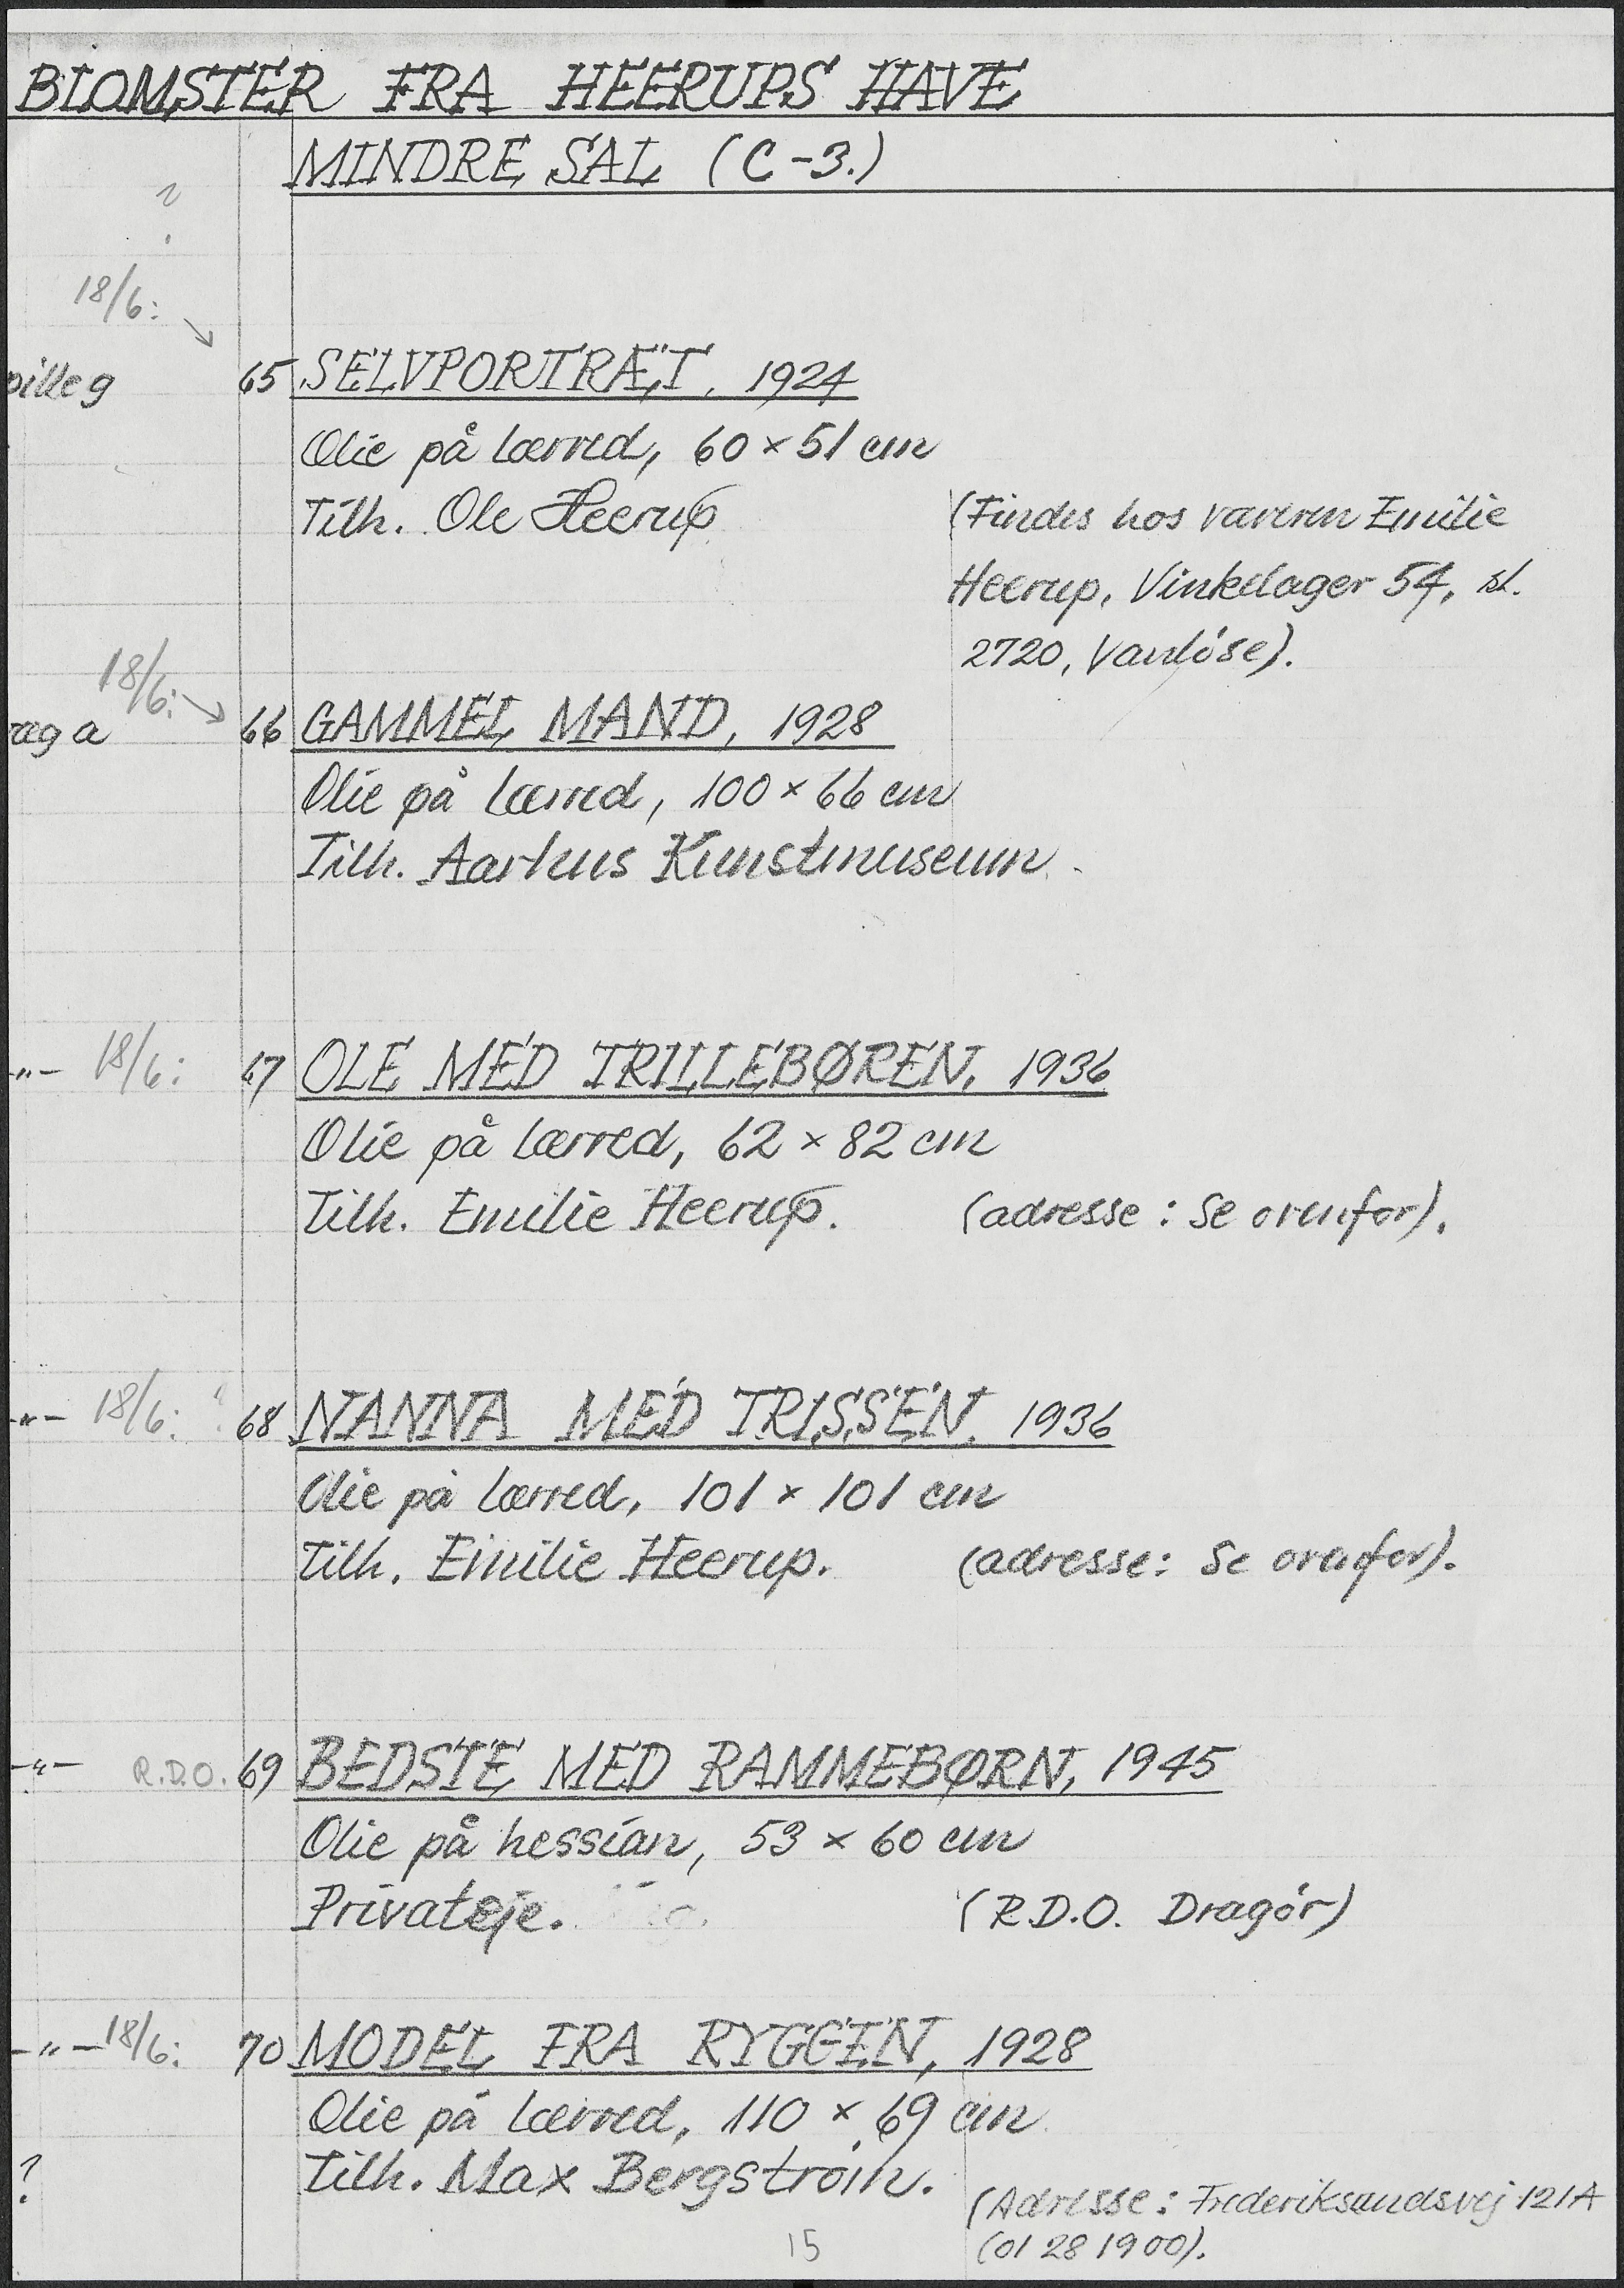 BLOMSTER FRA HEERUPS HAVE
MINDRE SAL (C-3.)
?
18/6:
65 SELVPORTRÆT, 1924
Olie på lærred, 60 x 51 cm
Tilh. Ole Heerup
(Findes hos Emilie
Heerup, Vinkelager 54, st.
2720, Vanløse).
18/6:
66 GAMMEL MAND, 1928
Olie på lærred, 100 x 66 cm
Tilh. Aarhus Kunstmuseum.
-"- 18/6: 67 OLE MED TRILLEBØREN, 1936
Olie på lærred, 62 x 82 cm
Tilh. Emilie Heerup. (adresse: se ovenfor).
-"- 18/6: ? 68 NANNA MED TRISSEN, 1936
Olie på lærred, 101 x 101 cm
Tilh. Emilie Heerup. (adresse: se ovenfor).
-"- R.D.O. 69 BEDSTE MED RAMMEBØRN, 1945
Olie på hessian, 53 x 60 cm
Privateje. (R.D.O. Dragør)
-"- 18/6: 70 MODEL FRA RYGGEN, 1928
Olie på lærred, 110 x 69 cm
? Tilh. Max Bergström.
(Adresse: Frederiksundsvej 121A
(01 28 19 00).
15